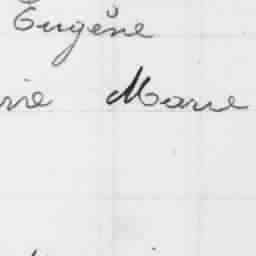 Eugène
rie Marie